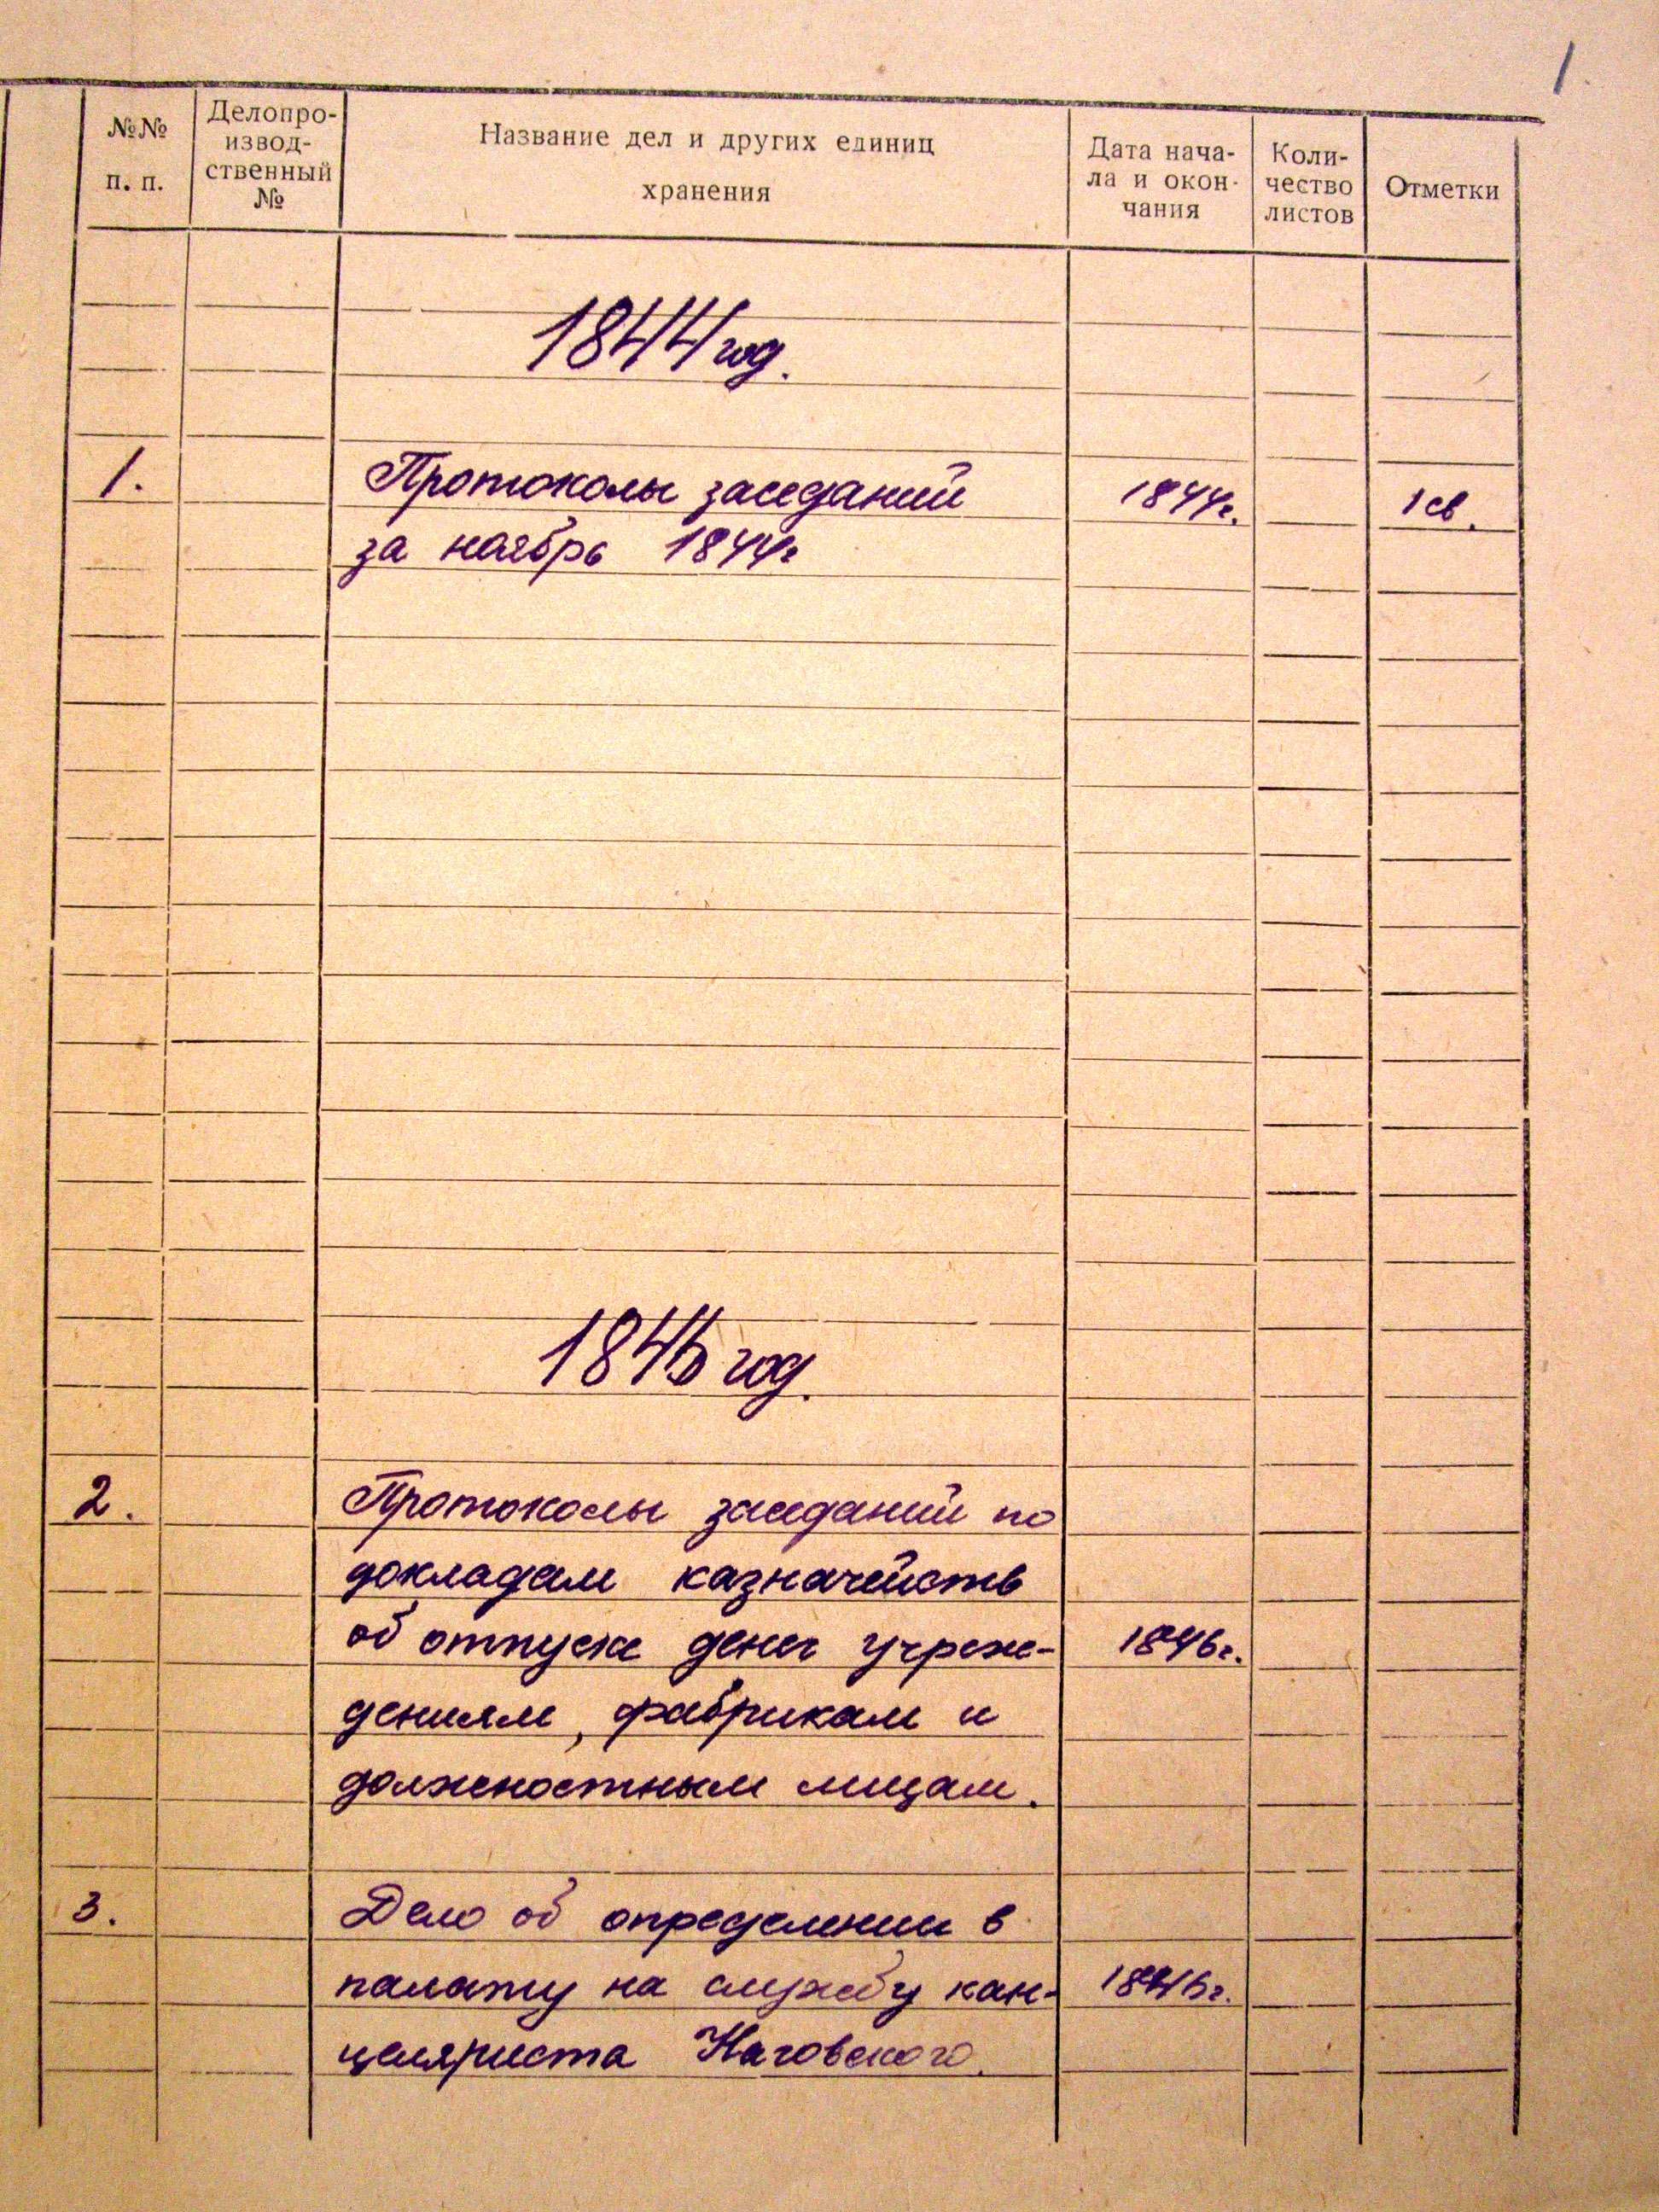 1
№№
п. п.
Делопро-
извод-
ственный
№
Название дел и других единиц
хранения
Дата нача-
ла и окон-
чания
Коли-
чество
листов
Отметки
1844 год.
1. Протоколы заседаний 1844г. 1 св.
за ноябрь 1844г
1846 год.
2. Протоколы заседаний по
докладам казначейств
об отпуске денег учреж- 1846г.
дениям, фабрикам и
должностным лицам.
3. Дело об определении в
палату на службу кан- 1846г.
целяриста